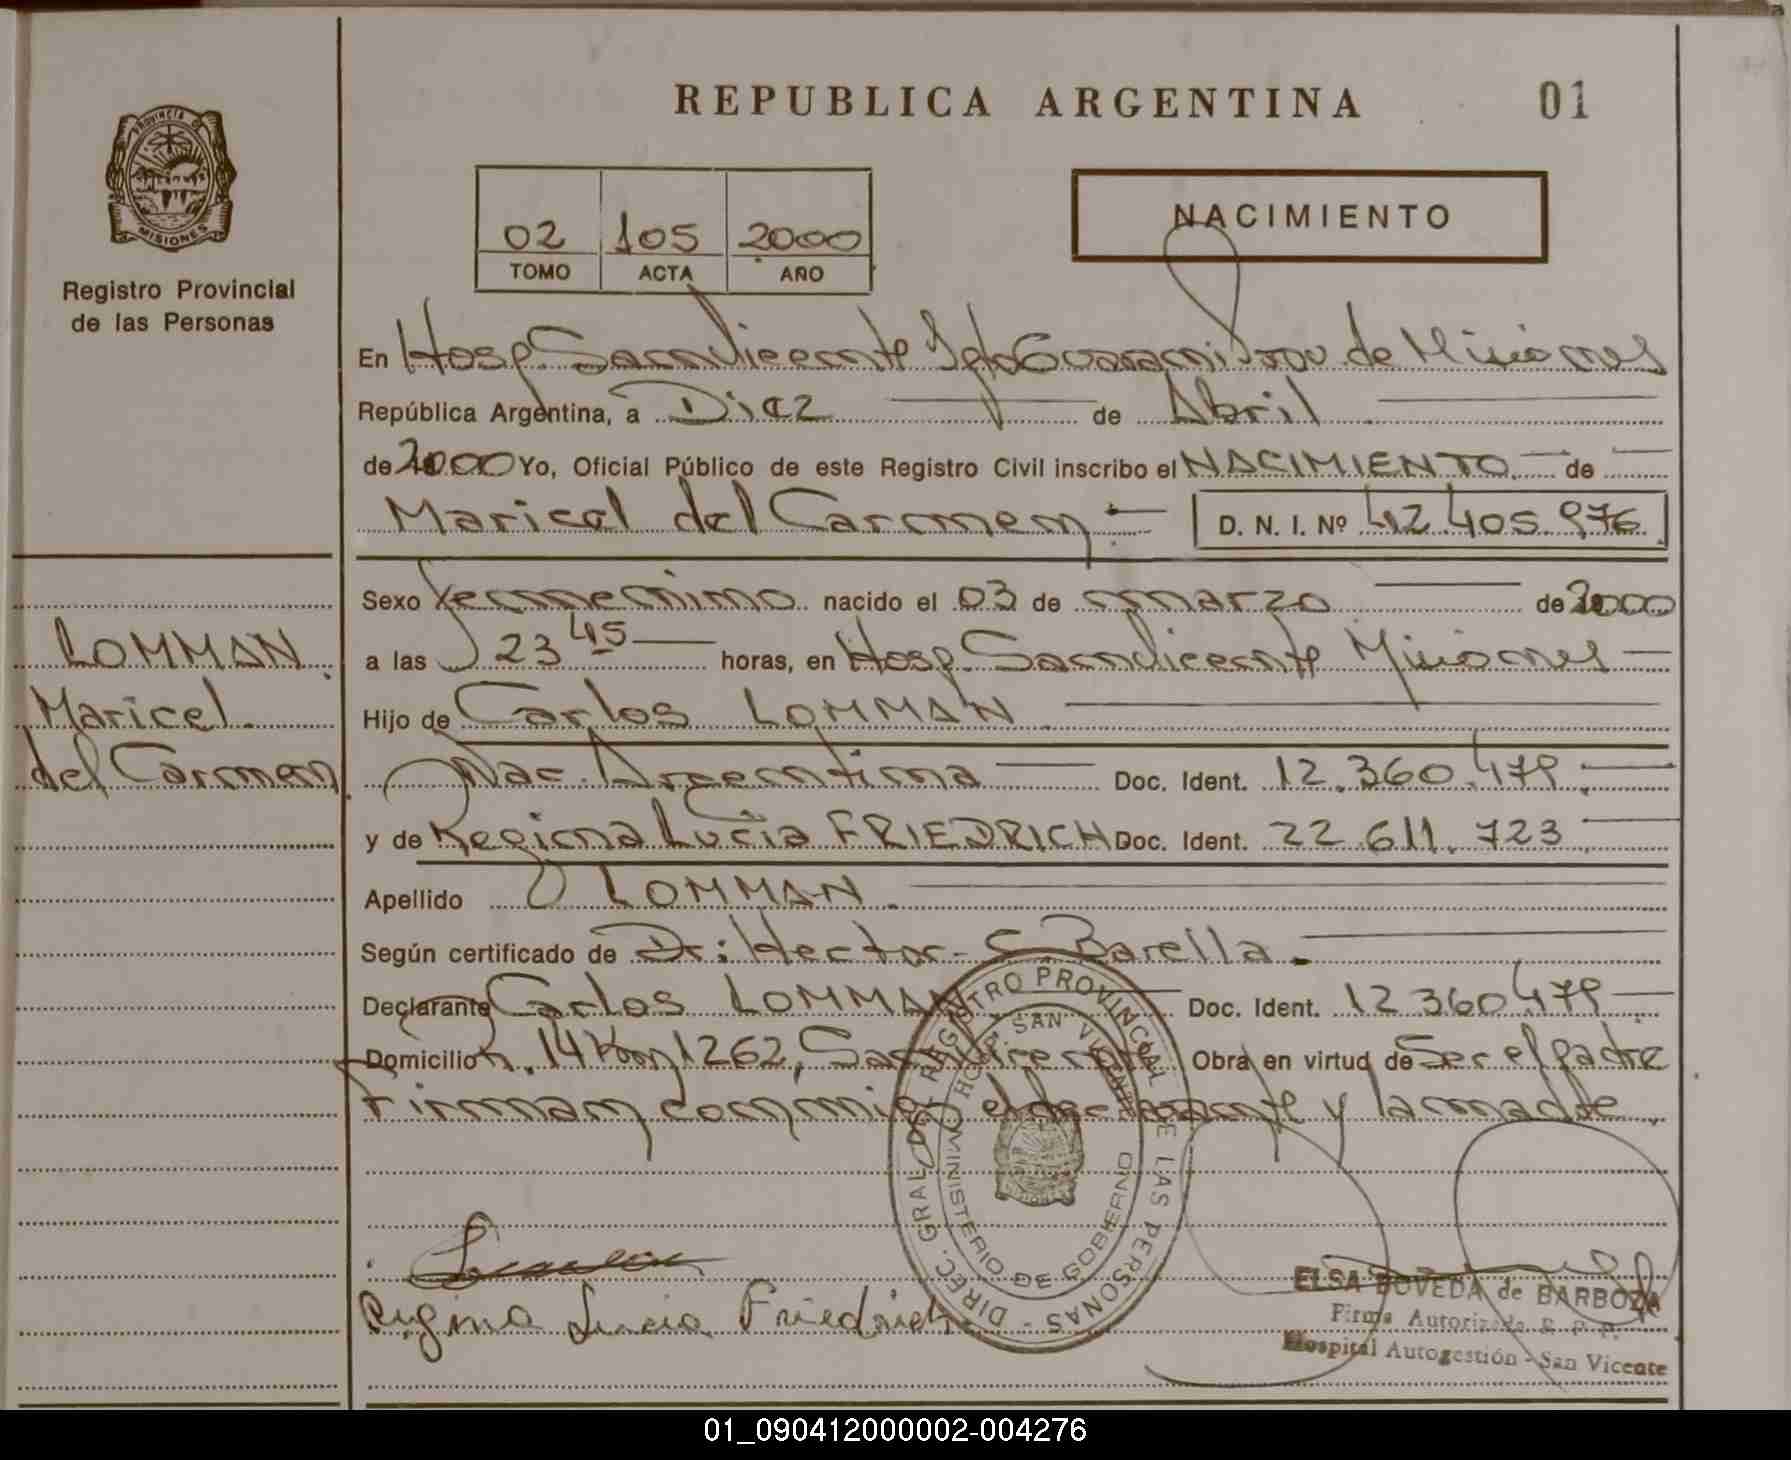 REPUBLICA ARGENTINA
01
PROVINCIA DE
MISIONES
Registro Provincial
de las Personas
02 105 2000
TOMO ACTA AÑO
NACIMIENTO
En Hosp. San Vicente Dpto Guaraní Prov. de Misiones
República Argentina, a Diez de Abril
de 2000 Yo, Oficial Público de este Registro Civil inscribo el NACIMIENTO de
Maricel del Carmen D. N. I. Nº 42.405.976
Sexo femenino nacido el 03 de marzo de 2000
a las 23 45 horas, en Hosp. San Vicente Misiones
Hijo de Carlos LOMMAN
Nac. Argentina Doc. Ident. 12.360.479
y de Regina Lucia FRIEDRICH Doc. Ident. 22.611.723
Apellido LOMMAN
Según certificado de Dr: Hector C Barella
Declarante Carlos LOMMAN Doc. Ident. 12360479
Domicilio R. 14 Km 1262, San Vicente Obra en virtud de Ser el padre
Firman conmigo el declarante y la madre
LOMMAN
Maricel
del Carmen
DIREC. GRAL. DEL REGISTRO PROVINCIAL DE LAS PERSONAS -
HOSP. SAN VICENTE
MINISTERIO DE GOBIERNO
MISIONES
Regina Lucia Friedrich
ELSA BOVEDA de BARBOZA
Firma Autorizada R. P. P.
Hospital Autogestión - San Vicente
01_090412000002-004276